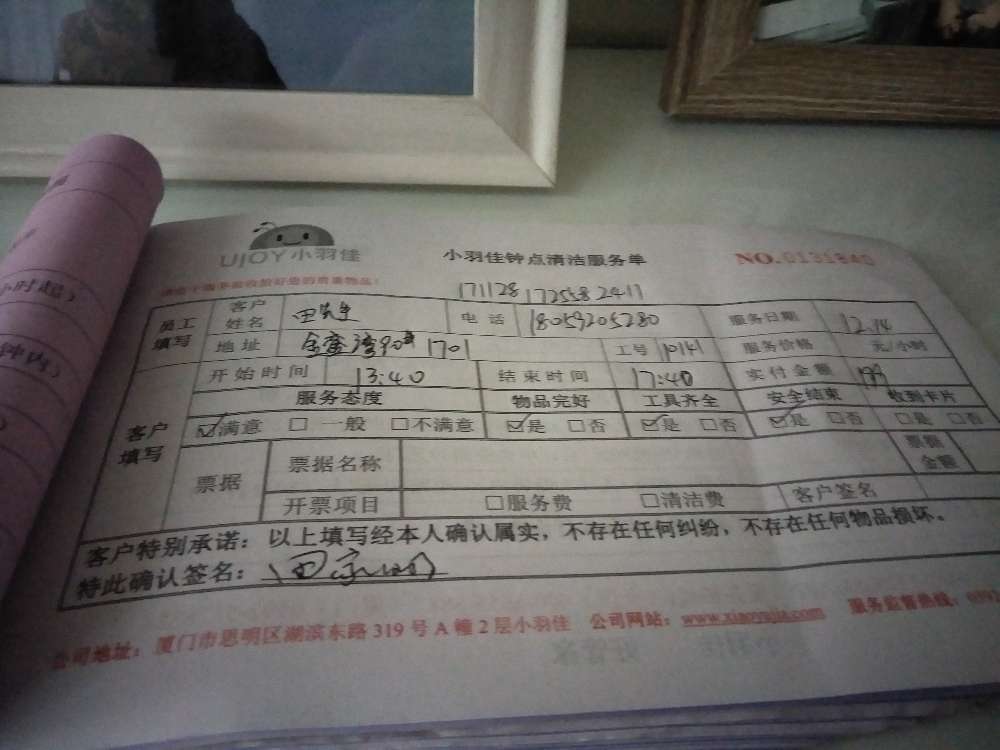 UJOY小羽佳
小羽佳钟点清洁服务单
NO.0131840
171128 172558 2411
员工填写 客户姓名 田先生 电话 18059205280 服务日期 12.14
地址 1701 工号 10141 服务价格 元/小时
开始时间 13:40 结束时间 17:40 实付金额 199
客户填写 服务态度 物品完好 工具齐全 安全结束 收到卡片
☑满意 □一般 □不满意 ☑是 □否 ☑是 □否 ☑是 □否 □是 □否
票据 票据名称 票额金额
开票项目 □服务费 □清洁费 客户签名
客户特别承诺：以上填写经本人确认属实，不存在任何纠纷，不存在任何物品损坏。
特此确认签名：
公司地址：厦门市思明区湖滨东路319号A幢2层小羽佳 公司网站：www.xiaoyujia.com 服务监督热线：